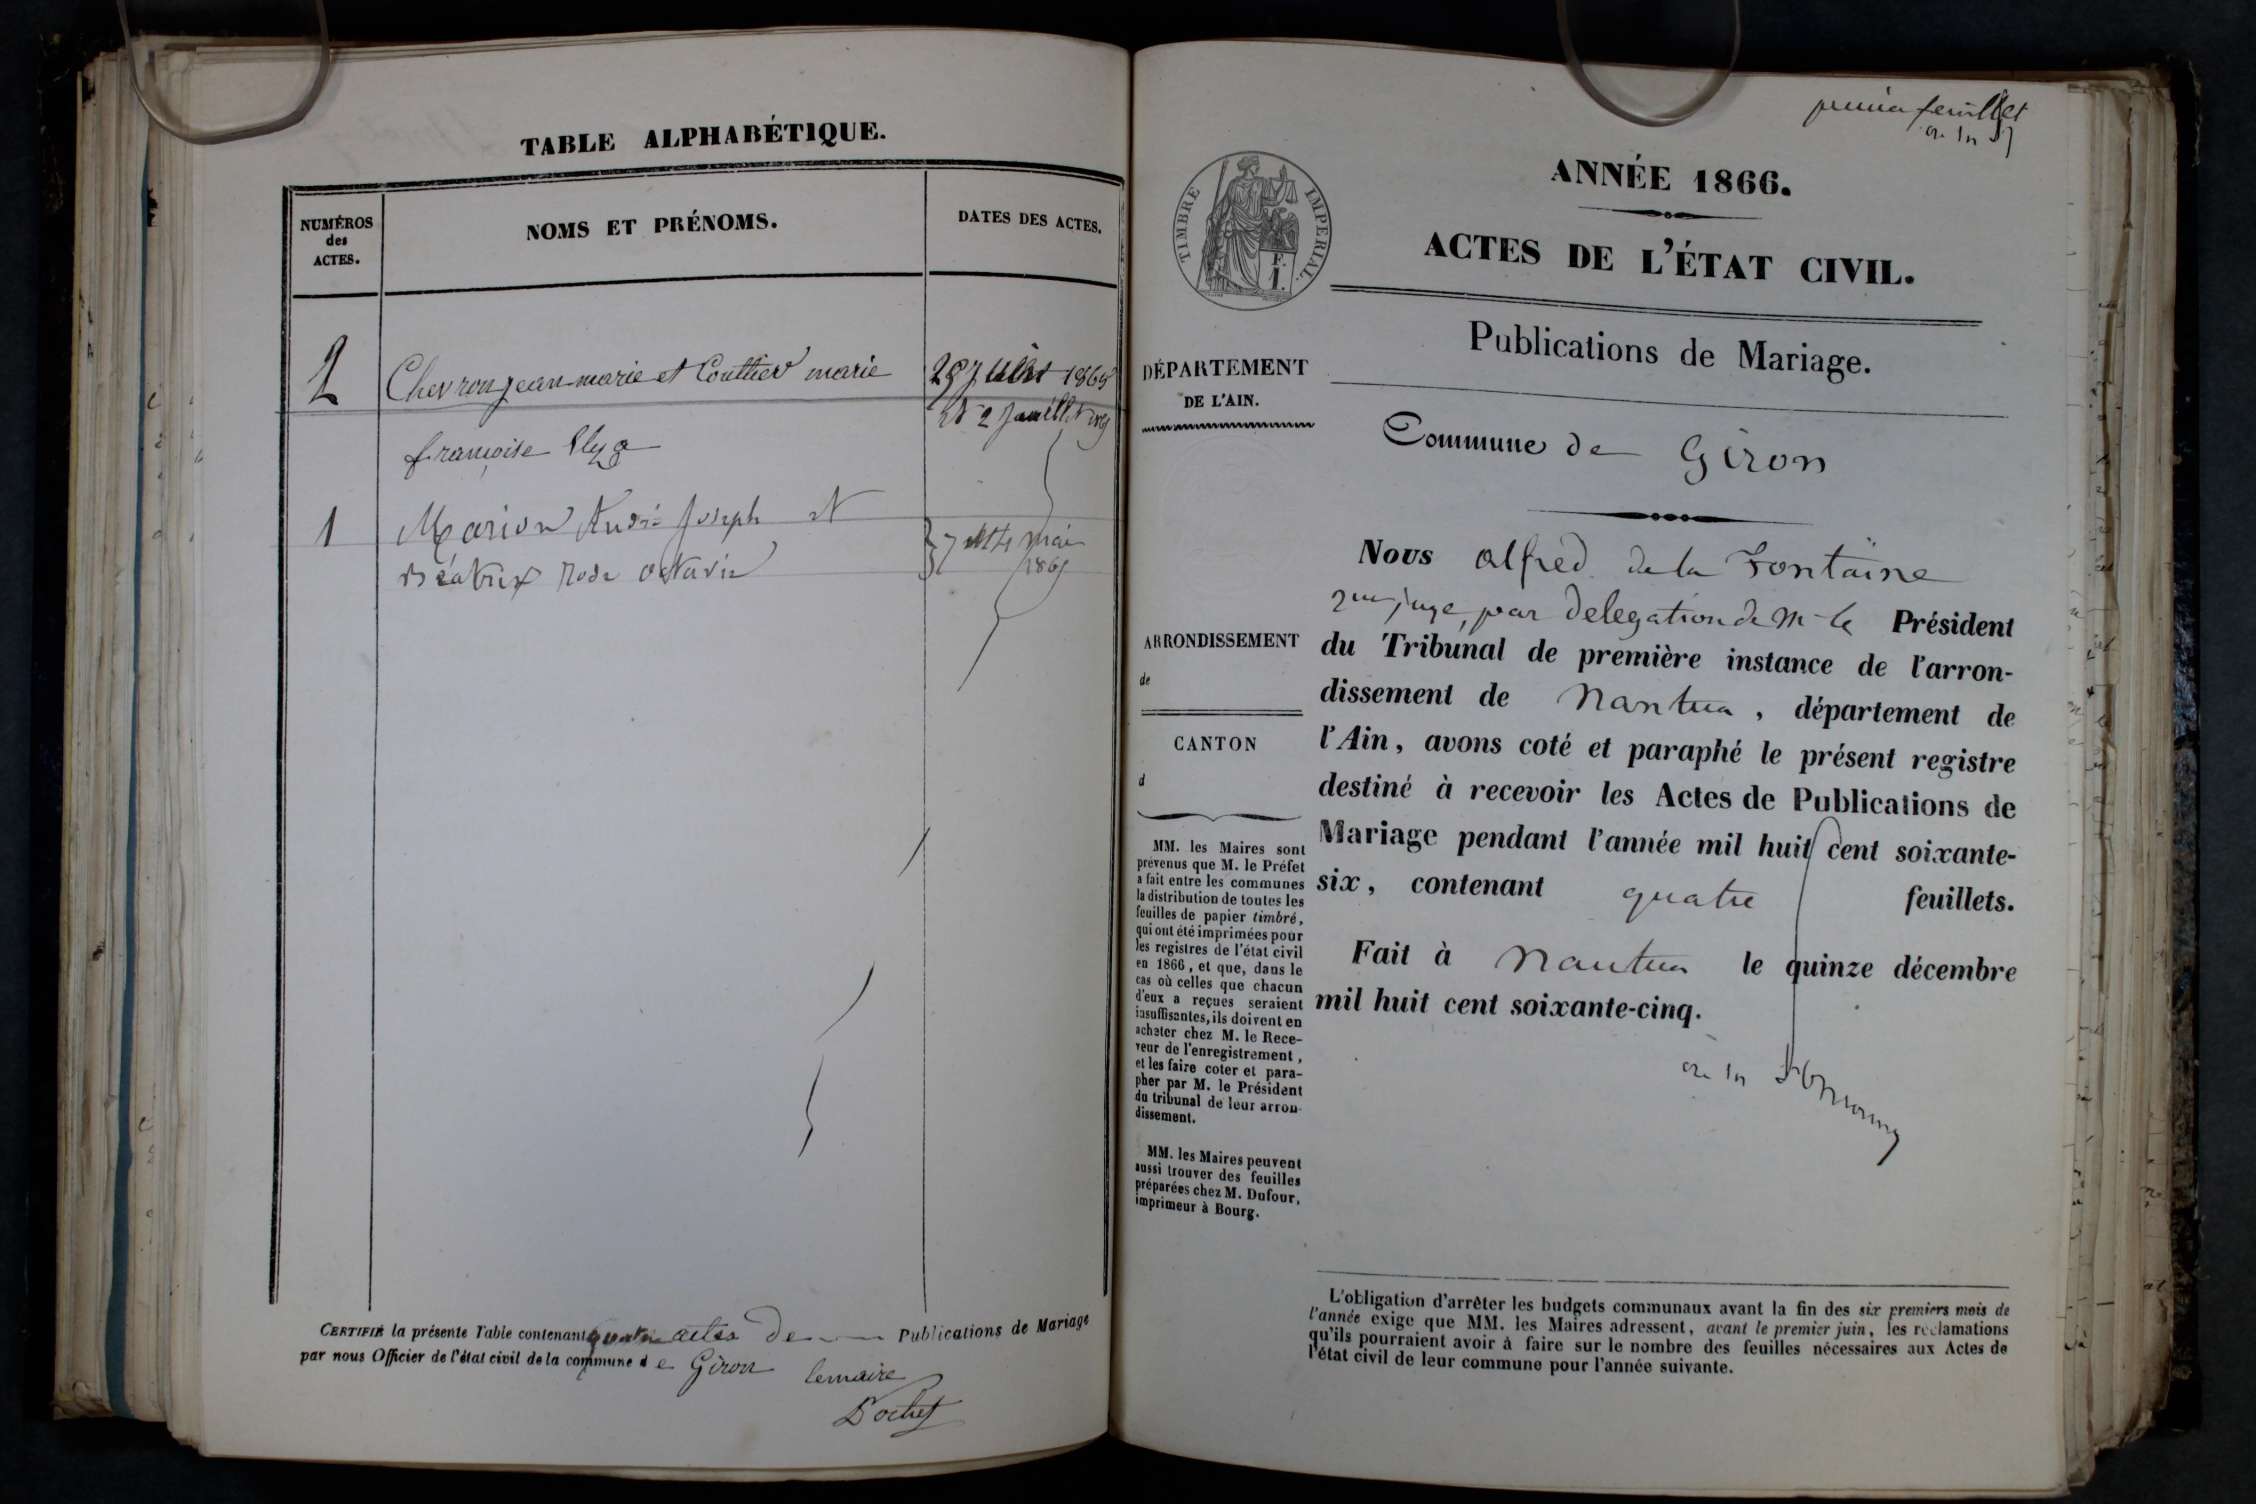 TABLE ALPHABÉTIQUE.
NUMÉROS
des
ACTES.
NOMS ET PRÉNOMS.
DATES DES ACTES.
2
Chevron jean marie et Couttier marie
françoise Elyza
et 2
1
Marion André Joseph et
Béatrix Rose octavie
7 et 14 mai
CERTIFIÉ la présente Table contenant quatre actes de Publications de Mariage
par nous Officier de l'état civil de la commune de Giron le maire
premier feuillet
ANNÉE 1866.
TIMBRE IMPERIAL.
F.
1.
ACTES DE L'ÉTAT CIVIL.
Publications de Mariage.
DÉPARTEMENT
DE L'AIN.
Commune de Giron
ARRONDISSEMENT
de
CANTON
d
Nous alfred de la Fontaine
juge, par delegation de M le Président
du Tribunal de première instance de l'arron-
dissement de Nantua, département de
l'Ain, avons coté et paraphé le présent registre
destiné à recevoir les Actes de Publications de
Mariage pendant l'année mil huit cent soixante-
six, contenant quatre feuillets.
Fait à Nantua le quinze décembre
mil huit cent soixante-cinq.
MM. les Maires sont
prévenus que M. le Préfet
a fait entre les communes
la distribution de toutes les
feuilles de papier timbré,
qui ont été imprimées pour
les registres de l'état civil
en 1866, et que, dans le
cas où celles que chacun
d'eux a reçues seraient
insuffisantes, ils doivent en
acheter chez M. le Rece-
veur de l'enregistrement,
et les faire coter et para-
pher par M. le Président
du tribunal de leur arron-
dissement.
MM. les Maires peuvent
aussi trouver des feuilles
préparées chez M. Dufour,
imprimeur à Bourg.
L'obligation d'arrêter les budgets communaux avant la fin des six premiers mois de
l'année exige que MM. les Maires adressent, avant le premier juin, les réclamations
qu'ils pourraient avoir à faire sur le nombre des feuilles nécessaires aux Actes de
l'état civil de leur commune pour l'année suivante.